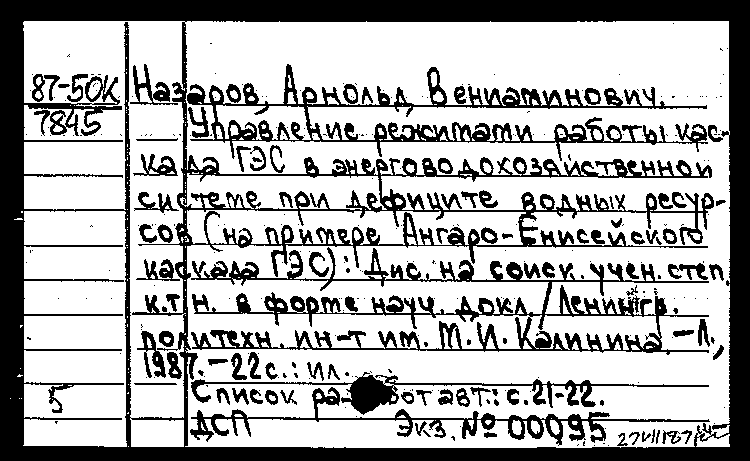 87-50К Назаров, Арнольд Вениаминович.
7845 Управление режимами работы кас-
када ГЭС в энерговодохозяйственной
системе при дефиците водных ресур-
сов (на примере Ангаро-Енисейского
каскада ГЭС): Дис. на соиск. учен. степ.
к.т.н. в форме науч. докл. / Ленингр.
политехн. ин-т им. М.И. Калинина. - Л.,
1987. - 22 с.: ил.
Список работ авт.: с. 21-22.
5
ДСП Экз. № 00095